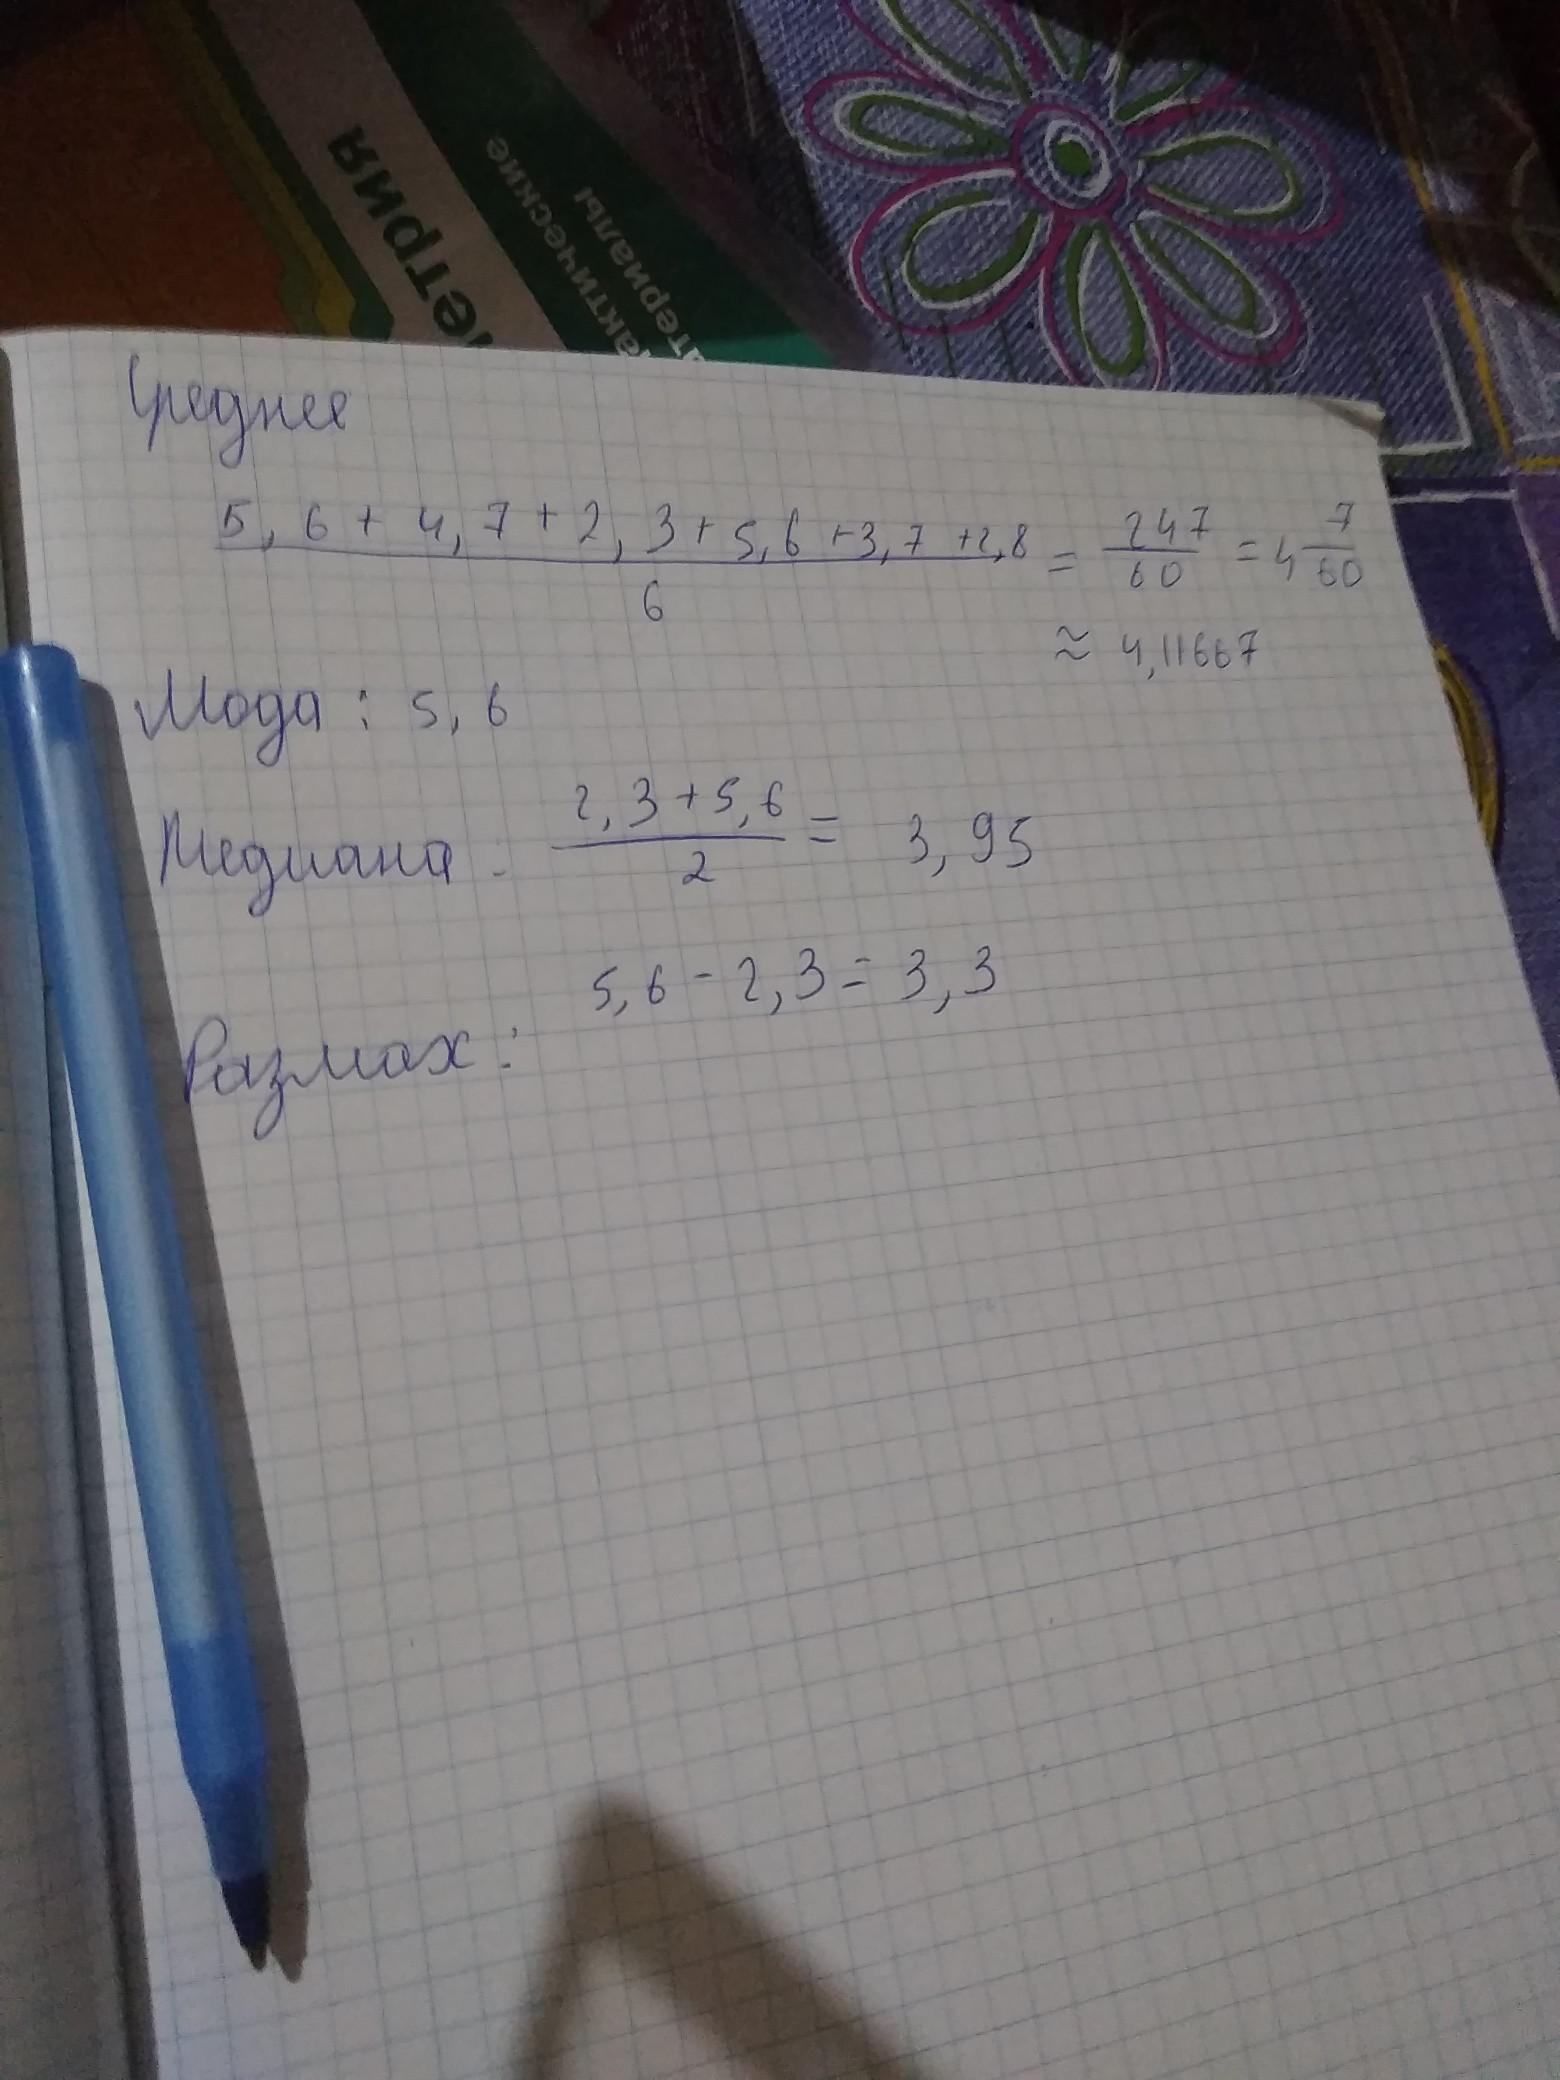 етрия
актические
атериалы
Среднее
5,6 + 4,7 + 2,3 + 5,6 + 3,7 + 2,8 / 6 = 247/60 = 4 7/60
≈ 4,11667
Мода : 5,6
Медиана : 2,3 + 5,6 / 2 = 3,95
Размах : 5,6 - 2,3 = 3,3